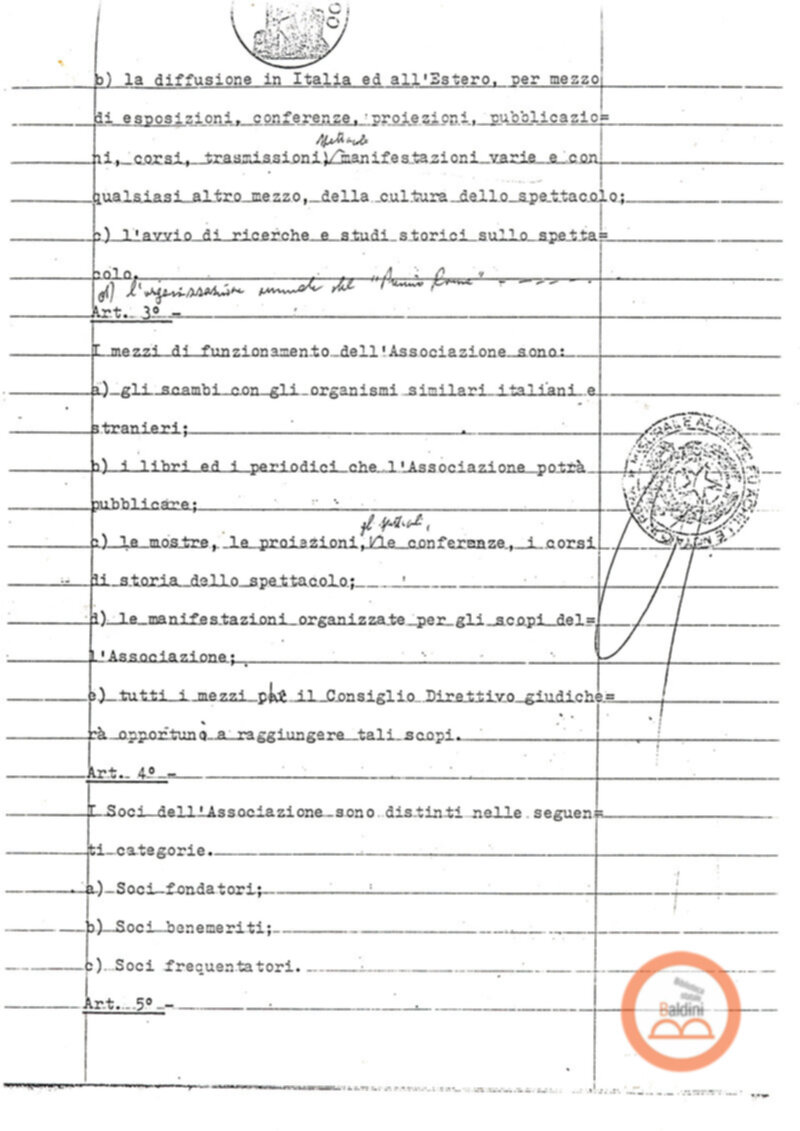 b) la diffusione in Italia ed all'Estero, per mezzo
di esposizioni, conferenze, proiezioni, pubblicazio=
spettacolo
ni, corsi, trasmissioni, manifestazioni varie e con
qualsiasi altro mezzo, della cultura dello spettacolo;
c) l'avvio di ricerche e studi storici sullo spetta=
colo.
d) l'organizzazione annuale del "Premio
Art. 3° -
I mezzi di funzionamento dell'Associazione sono:
a) gli scambi con gli organismi similari italiani e
stranieri;
b) i libri ed i periodici che l'Associazione potrà
pubblicare;
gli spettacoli,
c) le mostre, le proiezioni, le conferenze, i corsi
di storia dello spettacolo;
d) le manifestazioni organizzate per gli scopi del=
l'Associazione;
e) tutti i mezzi che il Consiglio Direttivo giudiche=
rà opportuno a raggiungere tali scopi.
Art. 4° -
I Soci dell'Associazione sono distinti nelle seguen=
ti categorie.
a) Soci fondatori;
b) Soci benemeriti;
c) Soci frequentatori.
Art. 5° -
Biblioteca
statale
Baldini